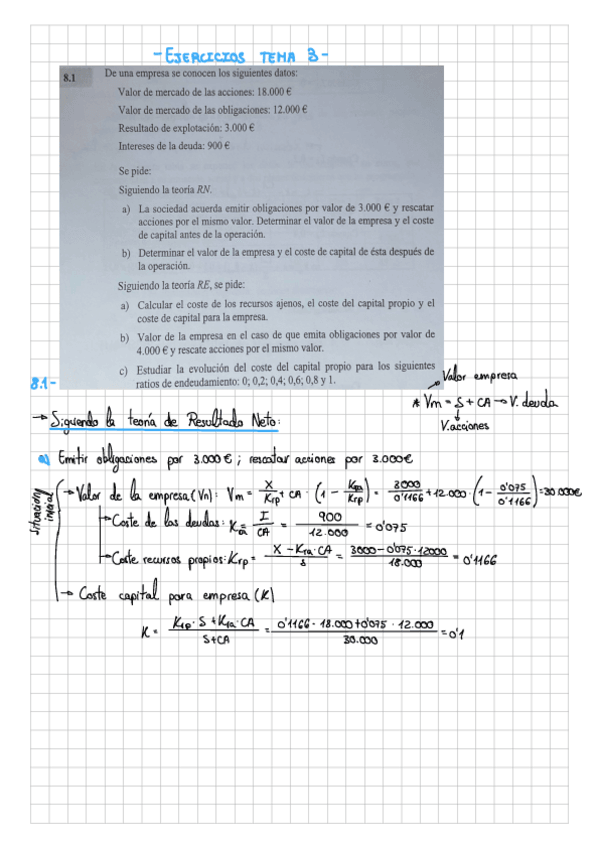 - EJERCICIOS TEMA 3 -
8.1 De una empresa se conocen los siguientes datos:
Valor de mercado de las acciones: 18.000 €
Valor de mercado de las obligaciones: 12.000 €
Resultado de explotación: 3.000 €
Intereses de la deuda: 900 €
Se pide:
Siguiendo la teoría RN.
a) La sociedad acuerda emitir obligaciones por valor de 3.000 € y rescatar
acciones por el mismo valor. Determinar el valor de la empresa y el coste
de capital antes de la operación.
b) Determinar el valor de la empresa y el coste de capital de ésta después de
la operación.
Siguiendo la teoría RE, se pide:
a) Calcular el coste de los recursos ajenos, el coste del capital propio y el
coste de capital para la empresa.
b) Valor de la empresa en el caso de que emita obligaciones por valor de
4.000 € y rescate acciones por el mismo valor.
c) Estudiar la evolución del coste del capital propio para los siguientes
ratios de endeudamiento: 0; 0,2; 0,4; 0,6; 0,8 y 1.
Valor empresa
8.1-
* Vm = S + CA → V. deuda
V. acciones
→ Siguendo la teoría de Resultado Neto:
a) Emitir obligaciones por 3.000 € ; rescatar acciones por 3.000€
Situación inicial
→ Valor de la empresa (Vn): Vm = X/Krp + CA · (1 - Kra/Krp) = 3000/0'1166 + 12.000 · (1 - 0'075/0'1166) = 30.000€
→ Coste de las deudas: Kra = I/CA = 900/12.000 = 0'075
→ Coste recursos propios: Krp = X - Kra · CA/S = 3000 - 0'075 · 12000/18.000 = 0'1166
→ Coste capital para empresa (K)
K = Krp · S + Kra · CA/S+CA = 0'1166 · 18.000 + 0'075 · 12.000/30.000 = 0'1